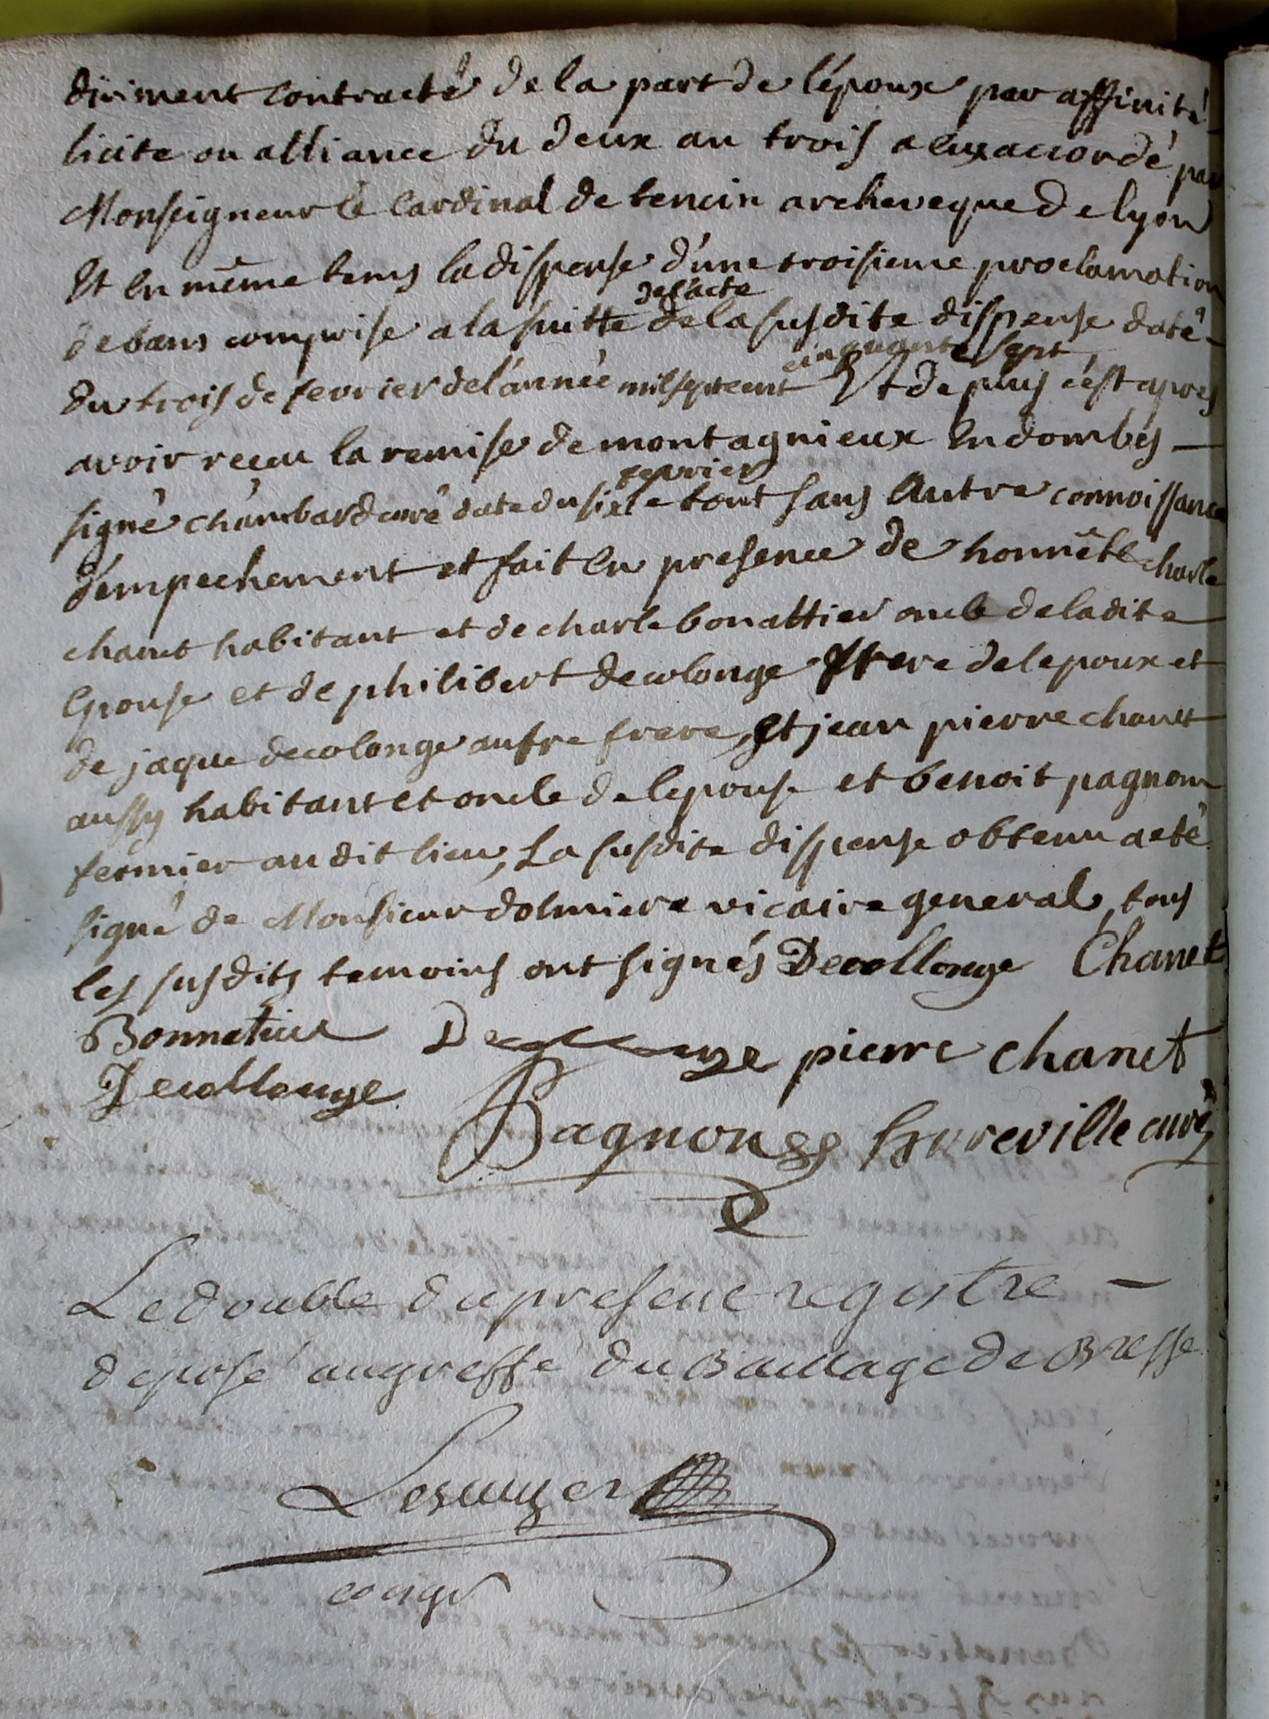 diriment contracté de la part de l'époux par affinité
licite ou alliance du deux au trois a eux accordé par
Monseigneur le Cardinal de tencin archeveque de lyon
Et en même tems la dispense d'une troisieme proclamation
de l'acte
de bans comprise a la suitte de la susdite dispense daté
cinquante sept
du trois de fevrier de l'année mil sept cent Et de plus c'est apres
avoir reçeu la remise de montagnieux en dombes
fevrier
signé chambard curé date du six le tout sans autre connoissance
d'empechement et fait en presence de honnête charle
chanet habitant et de charle bonattier oncle de ladite
Epouse et de philibert decolonge frere de lepoux et
de jaque decolonge autre frere, Et jean pierre chanet
aussy habitant et oncle de lepouse et benoit pagnon
fermier au dit lieu, La susdite dispense obtenu a eté
signé de Monsieur dolmiere vicaire general, tous
les susdits temoins ont signés Decollonge Chanet
Bonnetier pierre chanet
Decollonge
Pagnon curé
Le double du present registre
deposé au greffe du Bailliage de Bresse